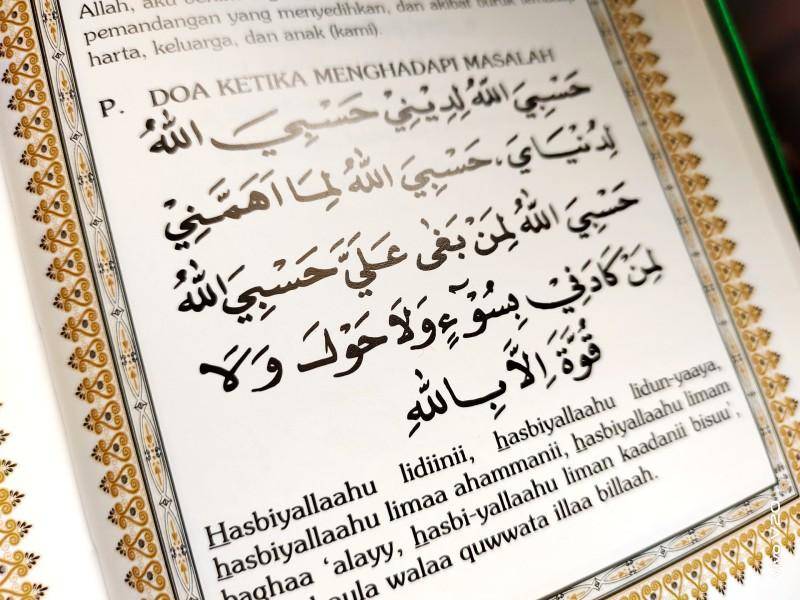 Allah, aku
pemandangan yang menyedihkan, dan akibat buruk
harta, keluarga, dan anak (kami).
P. DOA KETIKA MENGHADAPI MASALAH
حَسْبِيَ اللّٰهُ لِدِيْنِيْ حَسْبِيَ اللّٰهُ
لِدُنْيَايَ، حَسْبِيَ اللّٰهُ لِمَا اَهَمَّنِيْ
حَسْبِيَ اللّٰهُ لِمَنْ بَغٰى عَلَيَّ حَسْبِيَ اللّٰهُ
لِمَنْ كَادَنِيْ بِسُوْٓءٍ وَلَا حَوْلَ وَلَا
قُوَّةَ اِلَّا بِاللّٰهِ
Hasbiyallaahu lidiinii, hasbiyallaahu lidun-yaaya,
hasbiyallaahu limaa ahammanii, hasbiyallaahu limam
baghaa 'alayy, hasbi-yallaahu liman kaadanii bisuu',
haula walaa quwwata illaa billaah.